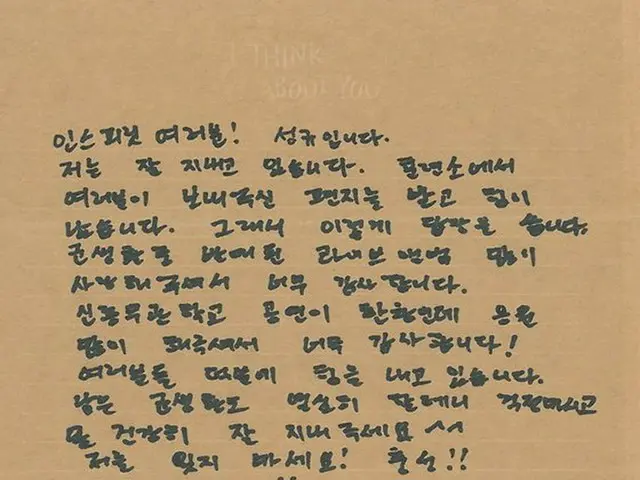 THINK
ABOUT YOU
인스피릿 여러분! 성규입니다.
저는 잘 지내고 있습니다. 훈련소에서
여러분이 보내주신 편지를 받고 힘이
났습니다. 그래서 이렇게 답장을 씁니다.
군생활을 라이브 앨범 많이
사랑해 주셔서 너무 감사합니다.
신흥무관학교 공연이 한창인데 응원
많이 해주셔서 너무 감사합니다!
여러분들 덕분에 힘을 내고 있습니다.
남은 군생활도 열심히 할테니 걱정마시고
몸 건강히 잘 지내주세요 ^^
저를 잊지 마세요! 충성!!